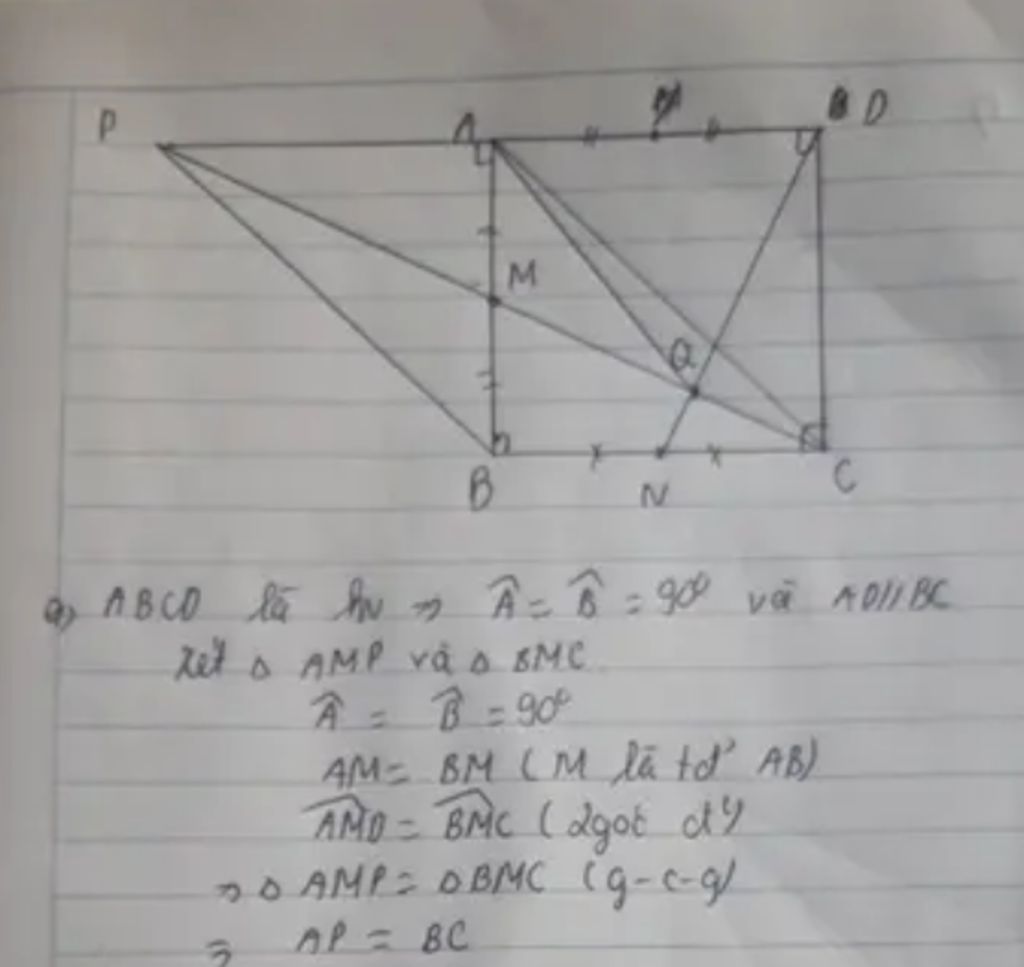 P A D
M
Q
B N C
a) ABCD là hv => Â = B̂ = 90° và AD//BC
Xét Δ AMP và Δ BMC
Â = B̂ = 90°
AM = BM (M là tđ' AB)
AMD = BMC (2 góc đ')
=> Δ AMP = Δ BMC (g-c-g)
=> AP = BC